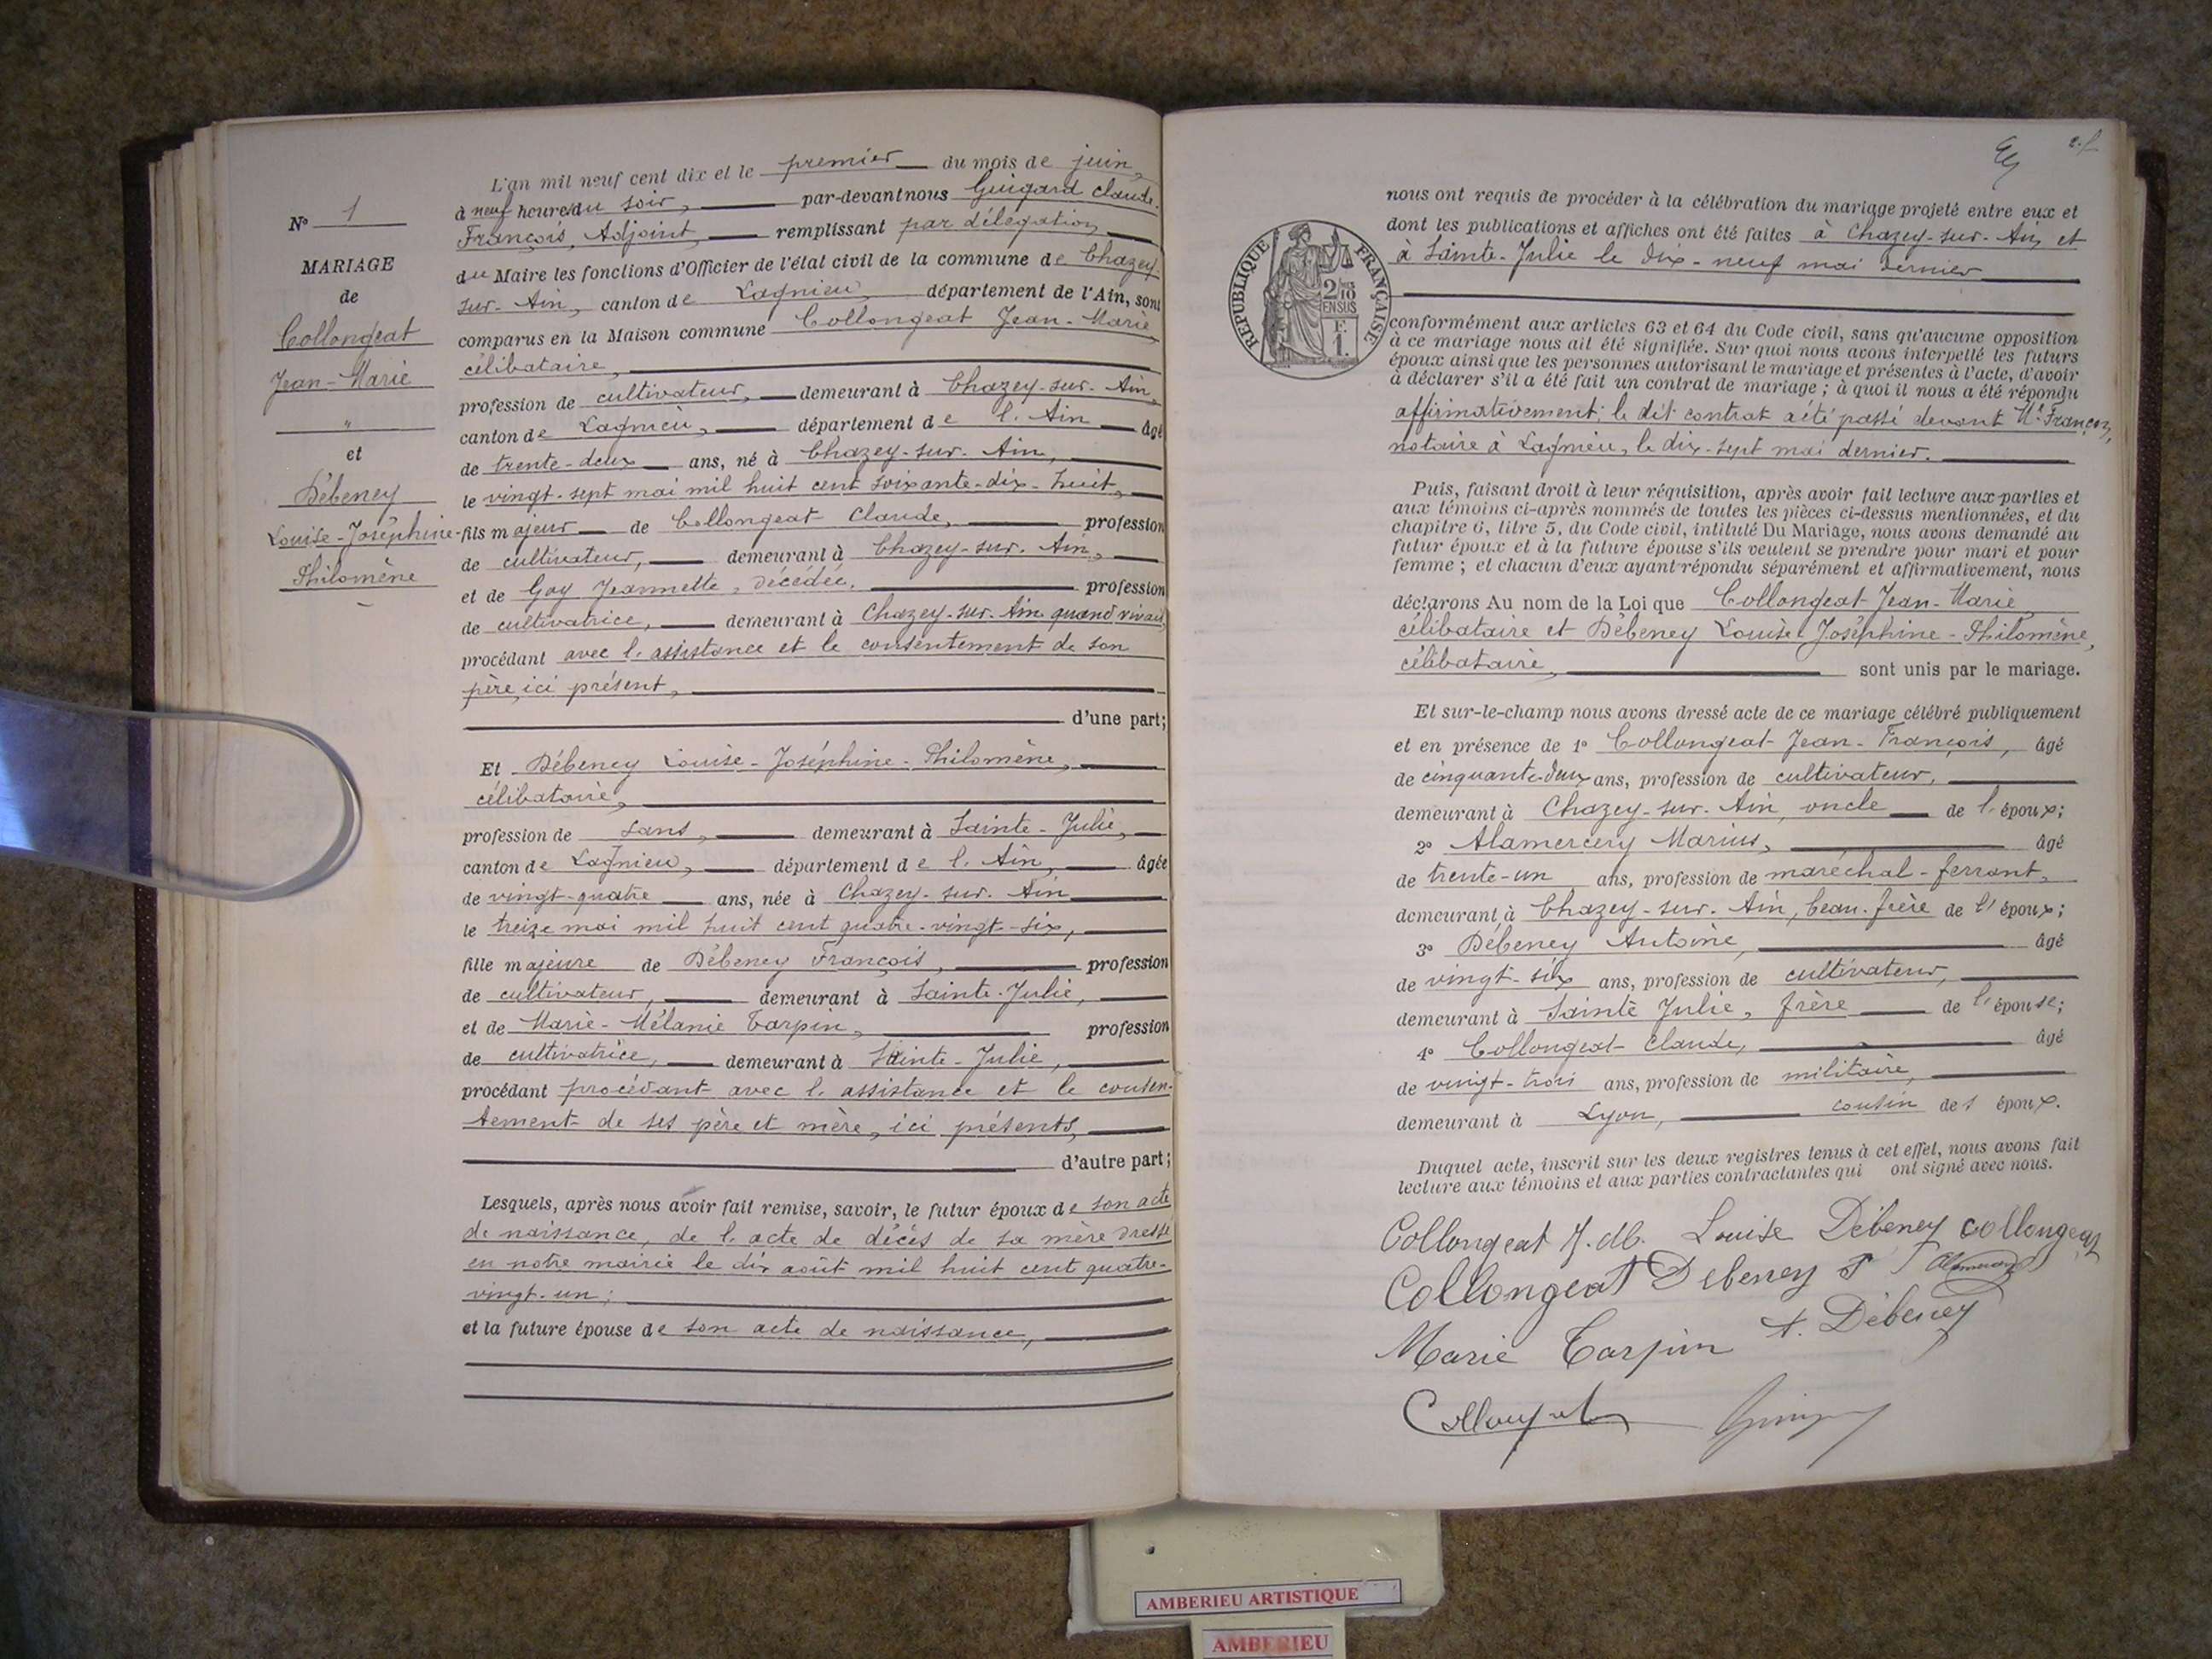 N° 1
MARIAGE
de
Collongeat
Jean-Marie
"
et
Débeney
Louise-Joséphine-
Philomène
L'an mil neuf cent dix et le premier du mois de juin,
à neuf heures du soir, par-devant nous Guigard Claude-
François, Adjoint, remplissant par délégation
du Maire les fonctions d'Officier de l'état civil de la commune de Chazey-
sur-Ain, canton de Lagnieu, département de l'Ain, sont
comparus en la Maison commune Collongeat Jean-Marie
célibataire,
profession de cultivateur, demeurant à Chazey-sur-Ain,
canton de Lagnieu, département de l'Ain âgé
de trente-deux ans, né à Chazey-sur-Ain,
le vingt-sept mai mil huit cent soixante-dix-huit,
fils majeur de Collongeat Claude, profession
de cultivateur, demeurant à Chazey-sur-Ain,
et de Goy Jeannette, décédée, profession
de cultivatrice, demeurant à Chazey-sur-Ain quand vivait,
procédant avec l'assistance et le consentement de son
père, ici présent,
d'une part;
Et Débeney Louise-Joséphine-Philomène,
célibataire,
profession de sans, demeurant à Sainte-Julie,
canton de Lagnieu, département de l'Ain, âgée
de vingt-quatre ans, née à Chazey-sur-Ain
le treize mai mil huit cent quatre-vingt-six,
fille majeure de Débeney François, profession
de cultivateur, demeurant à Sainte-Julie,
et de Marie-Mélanie Tarpin, profession
de cultivatrice, demeurant à Sainte-Julie,
procédant procédant avec l'assistance et le consen-
tement de ses père et mère, ici présents,
d'autre part;
Lesquels, après nous avoir fait remise, savoir, le futur époux de son acte
de naissance, de l'acte de décès de sa mère dressé
en notre mairie le dix août mil huit cent quatre-
vingt-un;
et la future épouse de son acte de naissance,
RÉPUBLIQUE FRANÇAISE
2/10
EN SUS
F.
1.
nous ont requis de procéder à la célébration du mariage projeté entre eux et
dont les publications et affiches ont été faites à Chazey-sur-Ain et
à Sainte-Julie le dix-neuf mai dernier
conformément aux articles 63 et 64 du Code civil, sans qu'aucune opposition
à ce mariage nous ait été signifiée. Sur quoi nous avons interpellé les futurs
époux ainsi que les personnes autorisant le mariage et présentes à l'acte, d'avoir
à déclarer s'il a été fait un contrat de mariage; à quoi il nous a été répondu
affirmativement: le dit contrat a été passé devant Me Françon,
notaire à Lagnieu, le dix-sept mai dernier.
Puis, faisant droit à leur réquisition, après avoir fait lecture aux parties et
aux témoins ci-après nommés de toutes les pièces ci-dessus mentionnées, et du
chapitre 6, titre 5, du Code civil, intitulé Du Mariage, nous avons demandé au
futur époux et à la future épouse s'ils veulent se prendre pour mari et pour
femme; et chacun d'eux ayant répondu séparément et affirmativement, nous
déclarons Au nom de la Loi que Collongeat Jean-Marie
célibataire et Débeney Louise Joséphine-Philomène,
célibataire, sont unis par le mariage.
Et sur-le-champ nous avons dressé acte de ce mariage célébré publiquement
et en présence de 1° Collongeat Jean-François, âgé
de cinquante-deux ans, profession de cultivateur,
demeurant à Chazey-sur-Ain, oncle de l'époux;
2° Alamercery Marius, âgé
de trente-un ans, profession de maréchal-ferrant,
demeurant à Chazey-sur-Ain, beau-frère de l'époux;
3° Débeney Antoine, âgé
de vingt-six ans, profession de cultivateur,
demeurant à Sainte Julie, frère de l'épouse;
4° Collongeat Claude, âgé
de vingt-trois ans, profession de militaire,
demeurant à Lyon, cousin des époux.
Duquel acte, inscrit sur les deux registres tenus à cet effet, nous avons fait
lecture aux témoins et aux parties contractantes qui ont signé avec nous.
Collongeat J. M. Louise Débeney Collongeat
Collongeat Debeney F
A. Débeney
Marie Tarpin
AMBERIEU ARTISTIQUE
AMBERIEU